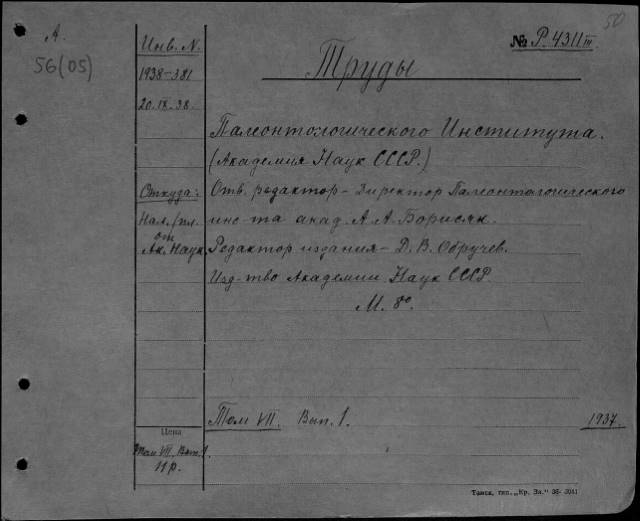 50
А.
56(05)
Инв. N.
№ Р. 4311 III
Труды
1938-381
20.IX.38.
Палеонтологического Института.
(Академия Наук СССР.)
Откуда:
Отв. редактор - Директор Палеонтологического
Нал./пл.
ин-та акад. А. А. Борисяк.
от
Ак. Наук
Редактор издания - Д. В. Обручев.
Изд-тво Академии Наук СССР.
М. 8°.
Том VII. Вып. 1.
1937.
Цена
Том VII. Вып. 1.
11р.
Томск, тип. „Кр. Зн." 38- 3041